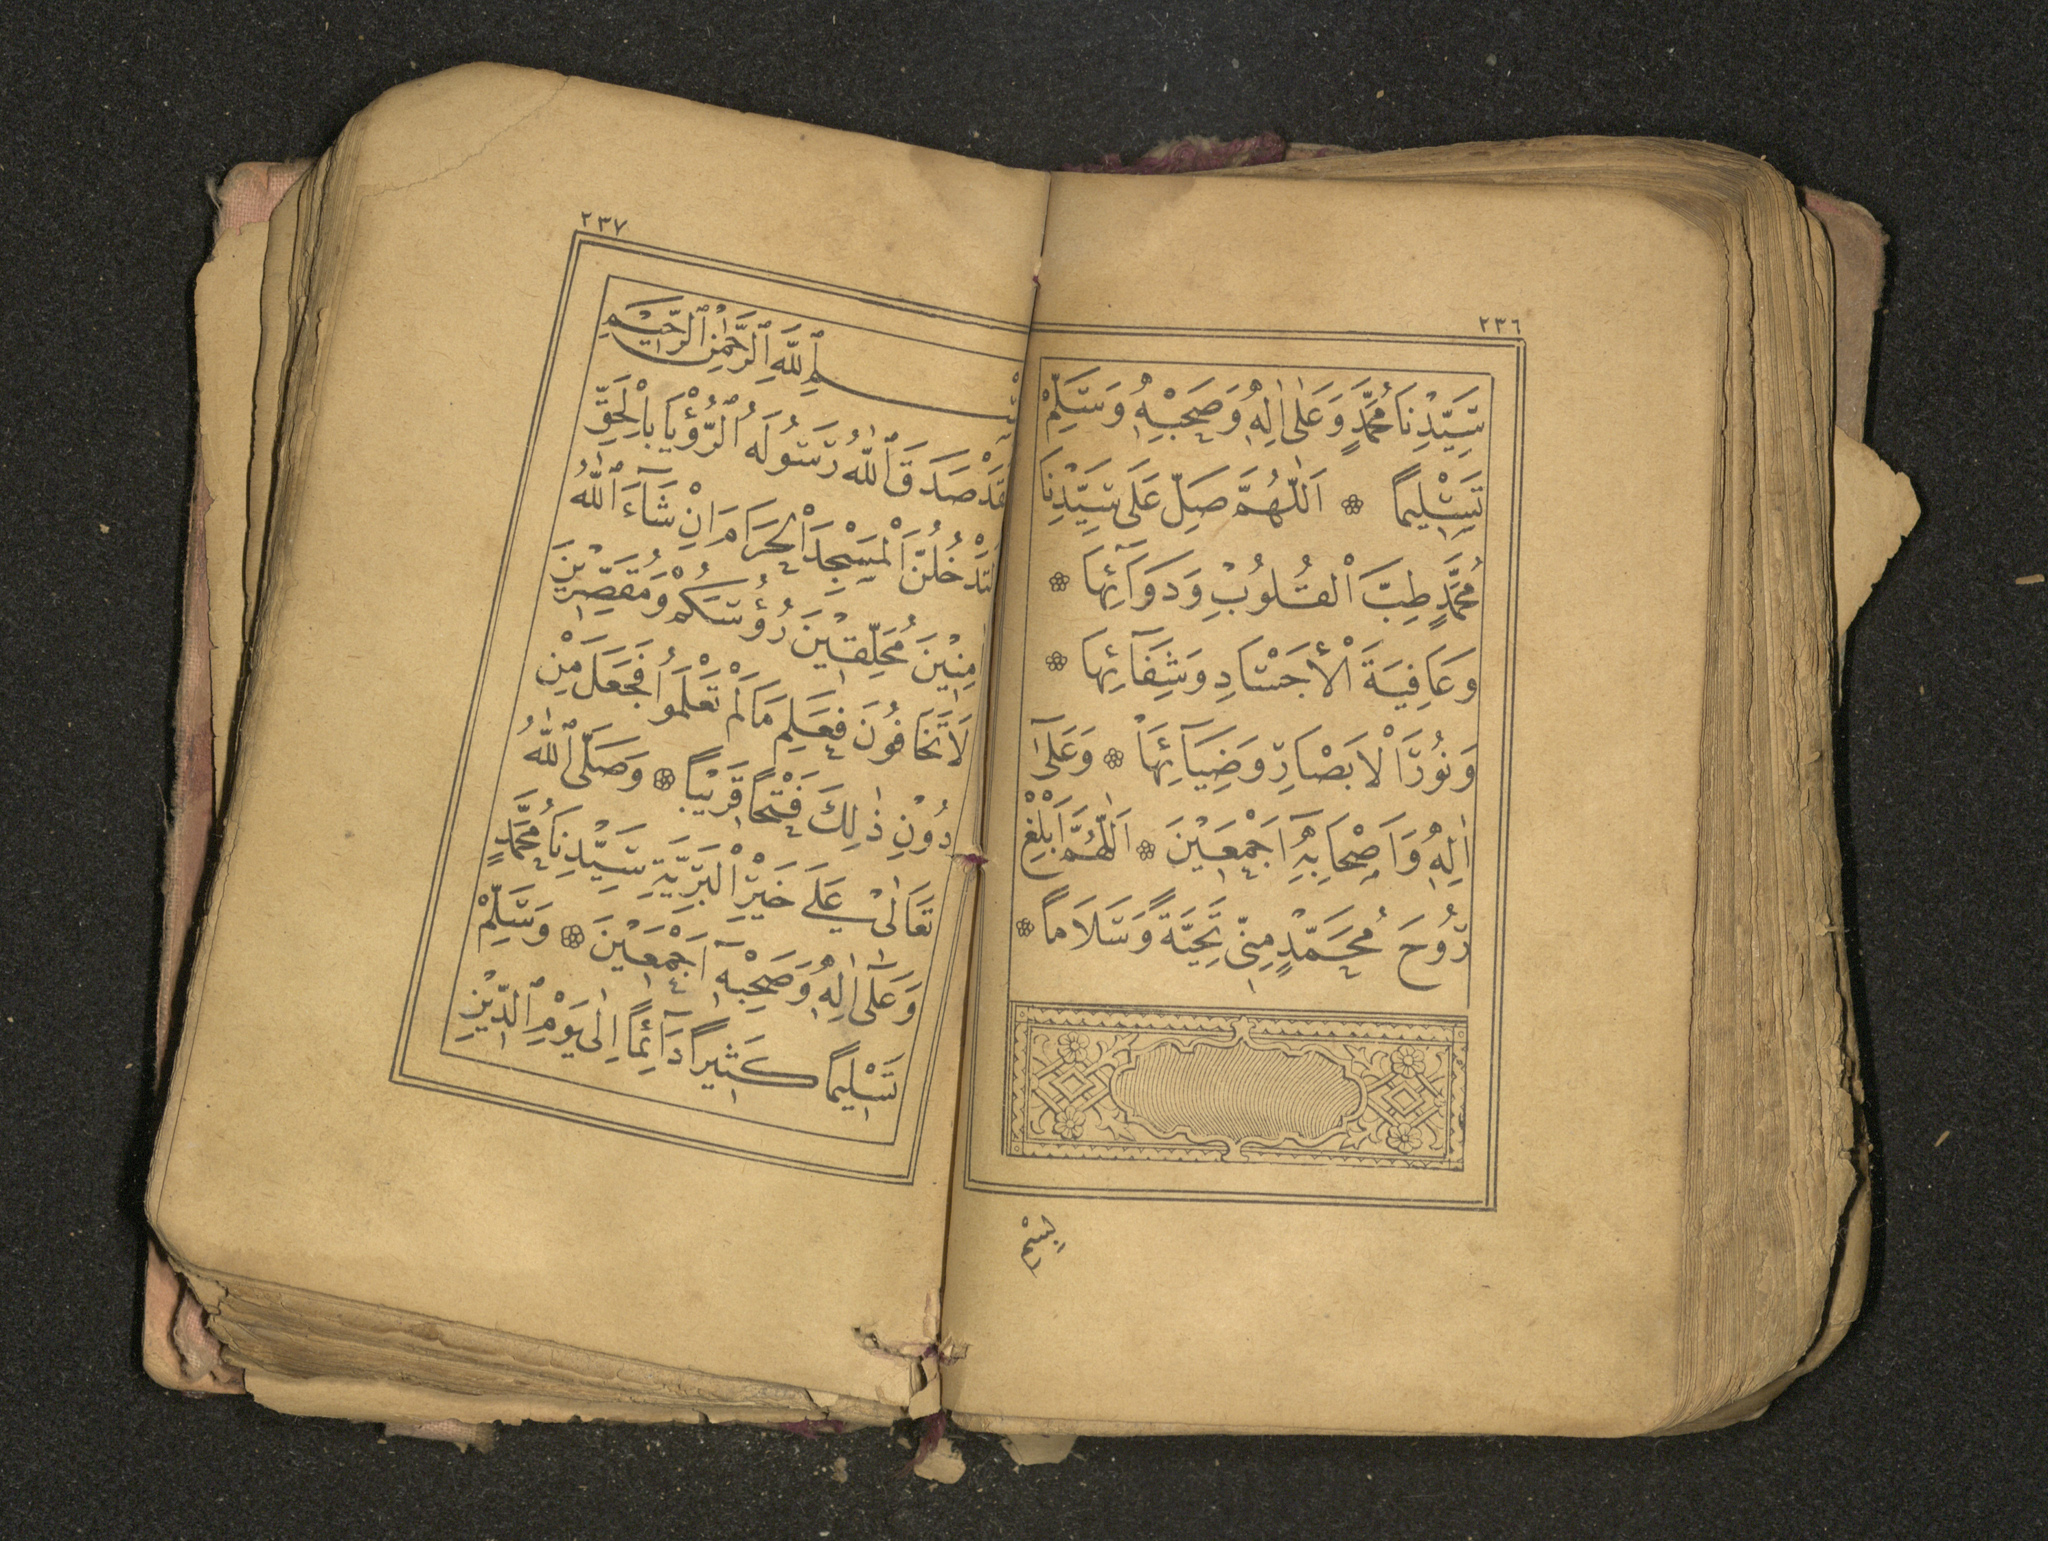 ٢٣٦
سَيِّدِنَا مُحَمَّدٍ وَعَلٰى اٰلِهٖ وَصَحْبِهٖ وَسَلِّمْ
تَسْلِيمًا ۞ اَللّٰهُمَّ صَلِّ عَلَى سَيِّدِنَا
مُحَمَّدٍ طِبَّ الْقُلُوْبِ وَدَوَآئِهَا ۞
وَعَافِيَةَ الْأَجْسَادِ وَشِفَآئِهَا ۞
وَنُوْرَ الْاَبْصَارِ وَضِيَآئِهَا ۞ وَعَلَىٓ
اٰلِهٖ وَاَصْحَابِهٖٓ اَجْمَعِيْنَ ۞ اَللّٰهُمَّ اَبْلِغْ
رُوْحَ مُحَمَّدٍ مِنّٖى تَحِيَّةً وَسَلَامًا ۞
بِسْمِ
٢٣٧
بِسْمِ ٱللّٰهِ ٱلرَّحْمٰنِ ٱلرَّحِيْمِ
لَقَدْ صَدَقَ ٱللّٰهُ رَسُولَهُ ٱلرُّؤْيَا بِالْحَقِّ
لَتَدْخُلُنَّ الْمَسْجِدَ الْحَرَامَ اِنْ شَآءَ ٱللّٰهُ
مِنِيْنَ مُحَلِّقِيْنَ رُؤُسَكُمْ وَمُقَصِّرِيْنَ
لَا تَخَافُوْنَ فَعَلِمَ مَالَمْ تَعْلَمُوا فَجَعَلَ مِنْ
دُوْنِ ذٰلِكَ فَتْحًا قَرِيْبًا ۞ وَصَلَّى ٱللّٰهُ
تَعَالٰى عَلَى خَيْرِ الْبَرِيَّةِ سَيِّدِنَا مُحَمَّدٍ
وَعَلٰٓى اٰلِهٖ وَصَحْبِهٖٓ اَجْمَعِيْنَ ۞ وَسَلِّمْ
تَسْلِيمًا كَثِيرًا دَآئِمًا اِلٰى يَوْمِ ٱلدِّيْنِ